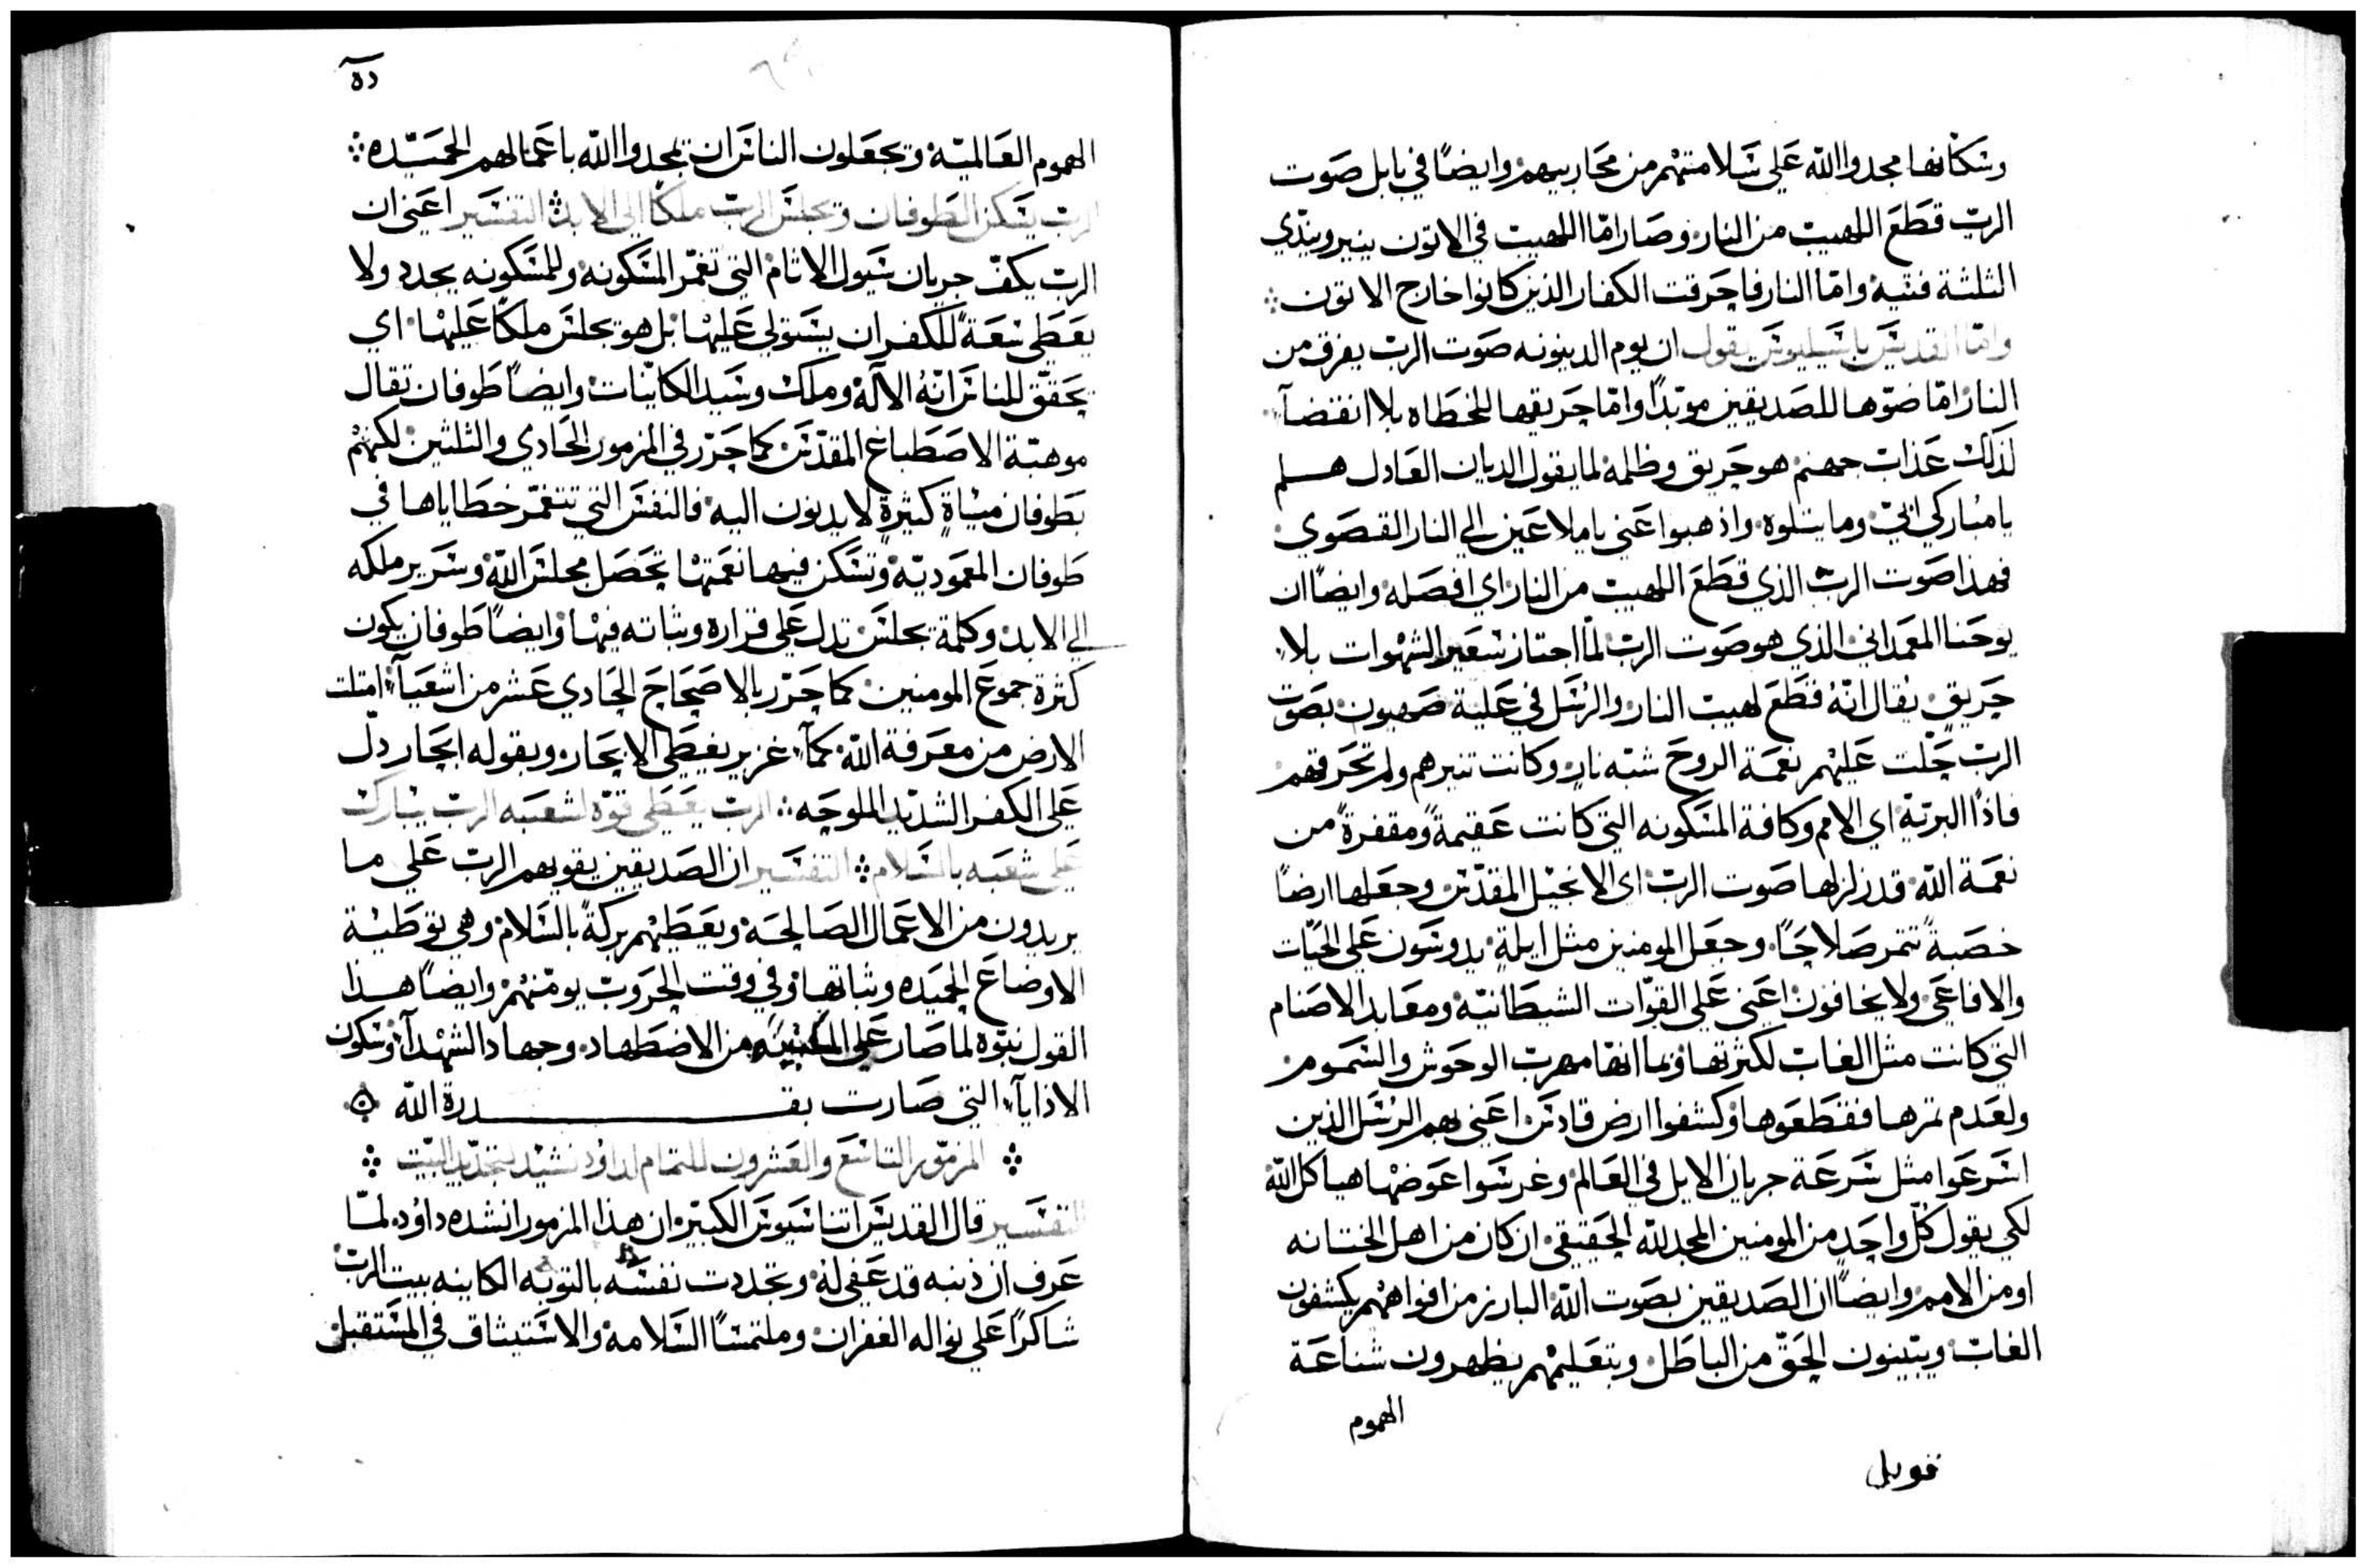 وسكانها مجدوا الله علي سلامتهم من محاربيهم وايضًا في بابل صوت
الرب قطع اللهيب من النار وصار امّا اللهيب في الاتون ينير ويندّي
الثلثة فتية وامّا النار فاحرقت الكفار الذين كانوا خارج الاتون
وامّا القديس باسيليوس يقول ان يوم الدينونه صوت الرب يفرق من
النار امّا ضوّها للصديقين موبّدًا وامّا حريقها للخطاه بلا انقضآء
لذلك عذاب جهنم هو حريق وظلمه لما يقول الديان العادل هلم
يا مباركي ابي وما يتلوه واذهبوا عني يا ملاعين الي النار القصوي
فهذا صوت الرب الذي قطع اللهيب من النار اي افصله وايضًا ان
يوحنا المعمداني الذي هو صوت الرب لمّا اجتاز سعير الشهوات بلا
حريقٍ يقال انّه قطع لهيب النار والرسل في علية صهيون بصوت
الرب حلّت عليهم نعمة الروح شبه نار وكانت تنيرهم ولم تحرقهم
فاذًا البريّة اي الامم وكافة المسكونه التي كانت عقيمةً ومقفرةً من
نعمة الله قد زلزلها صوت الرب اي الانجيل المقدّس وجعلها ارضًا
خصبةً تثمر صلاحًا وجعل المومنين مثل ايلةٍ يدوسون علي الحيّات
والافاعي ولا يخافون اعني علي القوّات الشيطانيّة ومعابد الاصنام
التي كانت مثل الغاب لكثرتها وبما انها مهرب الوحوش والسموم
ولعدم ثمرها فقطعوها وكشفوا ارض قادس اعني بهم الرسل الذين
اسرعوا مثل سرعة جريان الايل في العالم وغرسوا عوضها هياكل الله
لكي يقول كلّ واحد من المومنين المجد لله الحقيقي ان كان من اهل الختانه
او من الامم وايضًا ان الصديقين بصوت الله البارز من افواههم يكشفون
الغاب ويبيّنون الحق من الباطل وبتعليمهم يظهرون شناعة
الهموم
قوبل
الهموم العالميّة ويجعلون الناس ان يمجدوا الله باعمالهم الحميّده
الرب يسكن الطوفان ويجلس الرب ملكًا الي الابد التفسير اعني ان
الرب يكفّ جريان سيول الاثام التي تغمّر المسكونه وللمسكونه يجدد ولا
يعطي سعةً للكفر ان يستولي عليها بل هو يجلس ملكًا عليها اي
يحقّق للناس انّهُ الاله وملك وسيد الكاينات وايضًا طوفان تقال
موهبّة الاصطباغ المقدّس كما حرّر في المزمور الحادي والثلثين لكنهم
بطوفان مياةٍ كثيرةٍ لا يدنون اليه فالنفس التي تتغمّر خطاياها في
طوفان المعموديّة وتسكن فيها نعمتها تحصل مجلس الله وسرير ملكه
الي الابد وكلمة يجلس تدل علي قراره وثباته فيها وايضًا طوفان يكون
كثرة جموع المومنين كما حرّر بالاصحاح الحادي عشر من اشعيآء امتلت
الارض من معرفة الله كمآء غزير يغطي الابحار وبقوله ابحار دلّ
علي الكفر الشديد الملوحه الرب يعطي قوّه لشعبه الرب يبارك
علي شعبه بالسلام التفسير ان الصديقين يقويهم الرب علي ما
يريدون من الاعمال الصالحه ويعطيهم بركةً بالسلام وهي توطية
الاوضاع الحميده وثباتها وفي وقت الحروب يومّنهم وايضًا هذا
القول نبوّه لما صار علي من الاضطهاد وجهاد الشهدآء وسكون
الاذايآء التي صارت بقـدرة الله
المزمور التاسع والعشرون للتمام لداوُد نشيد لتجديد البيت
التفسير قال القديس اتناسيوس الكبير ان هذا المزمور انشده داوُد لمّا
عرف ان ذنبه قد عفي له وتجددت نفسه بالتوبه الكاينه بيت الرب
شاكرًا علي نواله الغفران وملتمسًا السلامه والاستيثاق في المستقبل